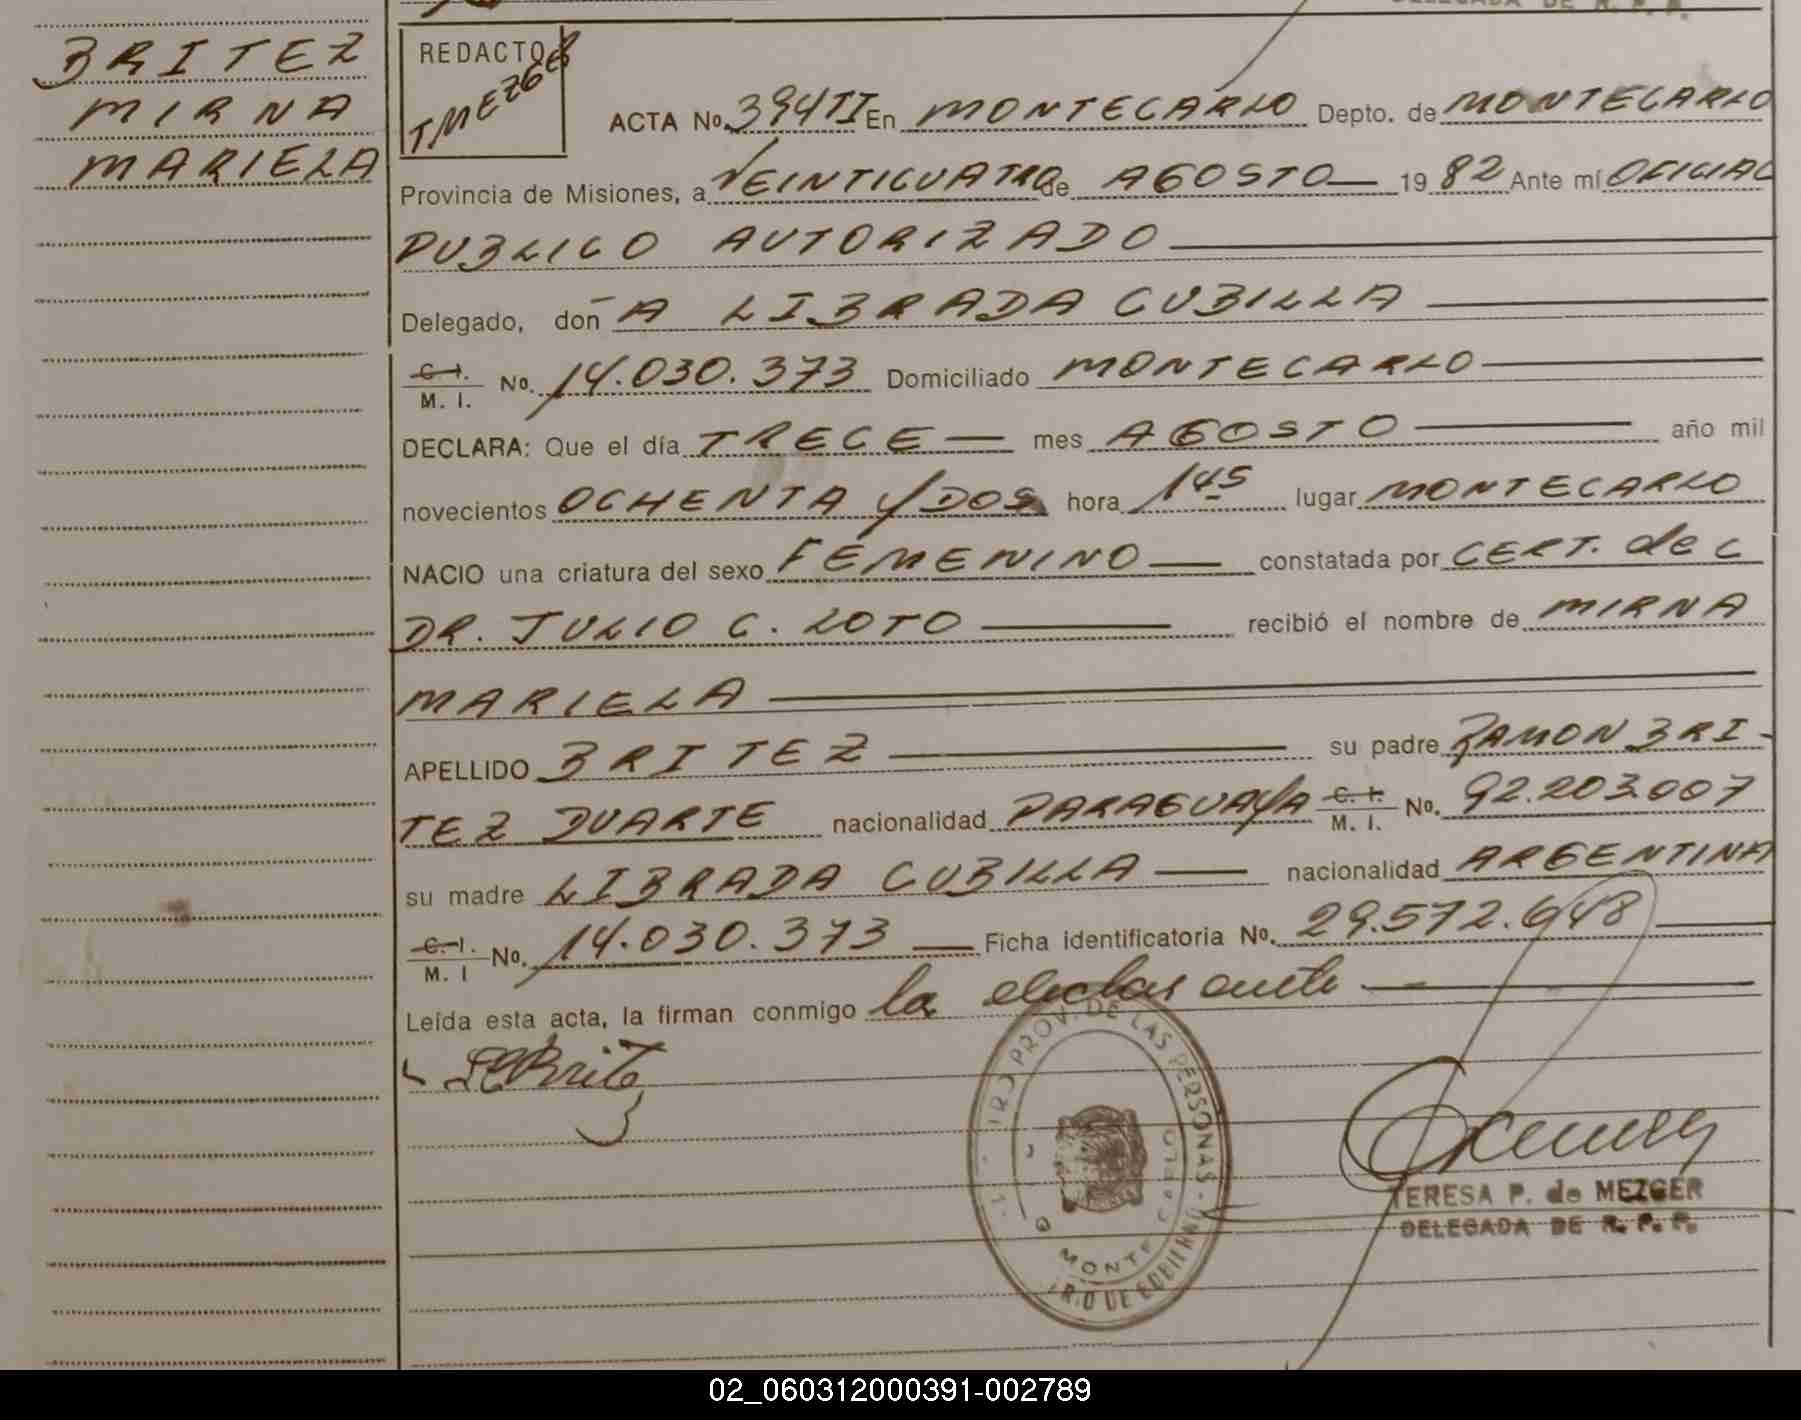 BRITEZ
MIRNA
MARIELA
REDACTOR
TMEZGER
ACTA No. 394 II En MONTECARLO Depto. de MONTECARLO
Provincia de Misiones, a VEINTICUATRO de AGOSTO 19 82 Ante mí OFICIAL
PUBLICO AUTORIZADO
Delegado, don A LIBRADA CUBILLA
C. I. M. I. No. 14.030.373 Domiciliado MONTECARLO
DECLARA: Que el día TRECE mes AGOSTO año mil
novecientos OCHENTA y DOS hora 1 45 lugar MONTECARLO
NACIO una criatura del sexo FEMENINO constatada por CERT. del
DR. JULIO C. LOTO recibió el nombre de MIRNA
MARIELA
APELLIDO BRITEZ su padre RAMON BRI-
TEZ DUARTE nacionalidad PARAGUAYA C. I. M. I. No. 92.203.007
su madre LIBRADA CUBILLA nacionalidad ARGENTINA
C. I. M. I No. 14.030.373 Ficha identificatoria No. 29.572.648
Leída esta acta, la firman conmigo la declarante
PROV. DE LAS PERSONAS
MONTE CARLO
RIO DE GOBIERNO
TERESA P. de MEZGER
DELEGADA DE R. P. P.
02_060312000391-002789